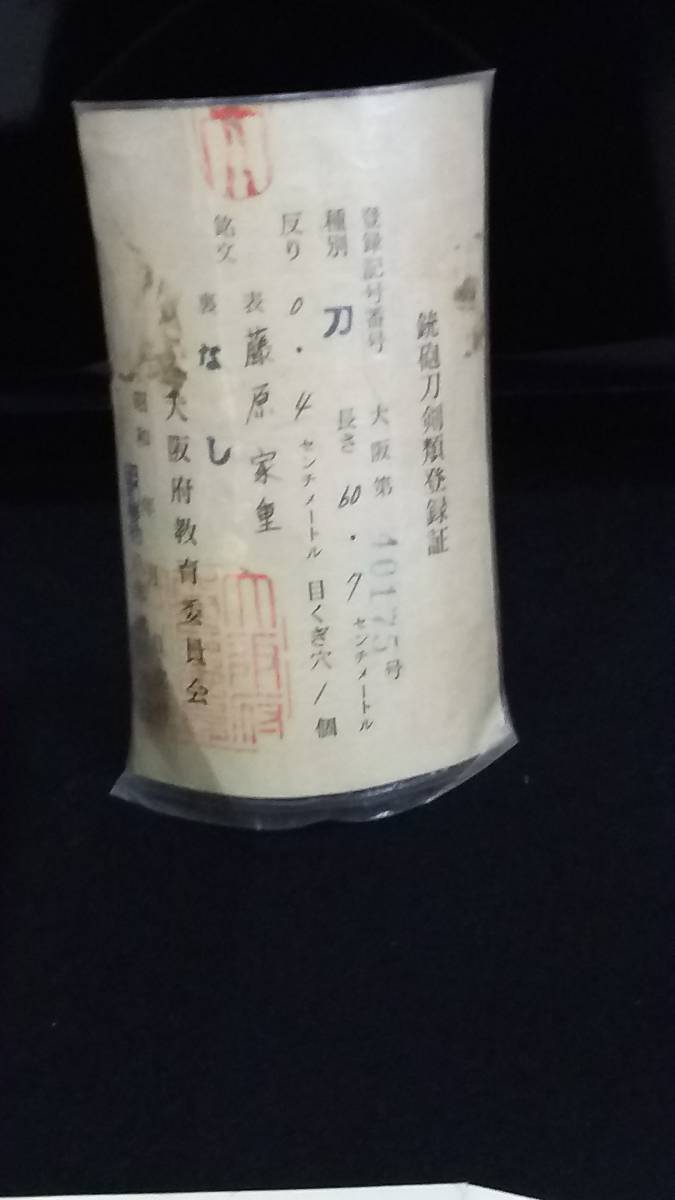 銃砲刀剣類登録証
登録記号番号 大阪第 40175号
種別 刀 長さ 60.7センチメートル
反り 0.4センチメートル 目くぎ穴 1個
銘文 表 藤原家重
裏 なし
大阪府教育委員会
昭和 年